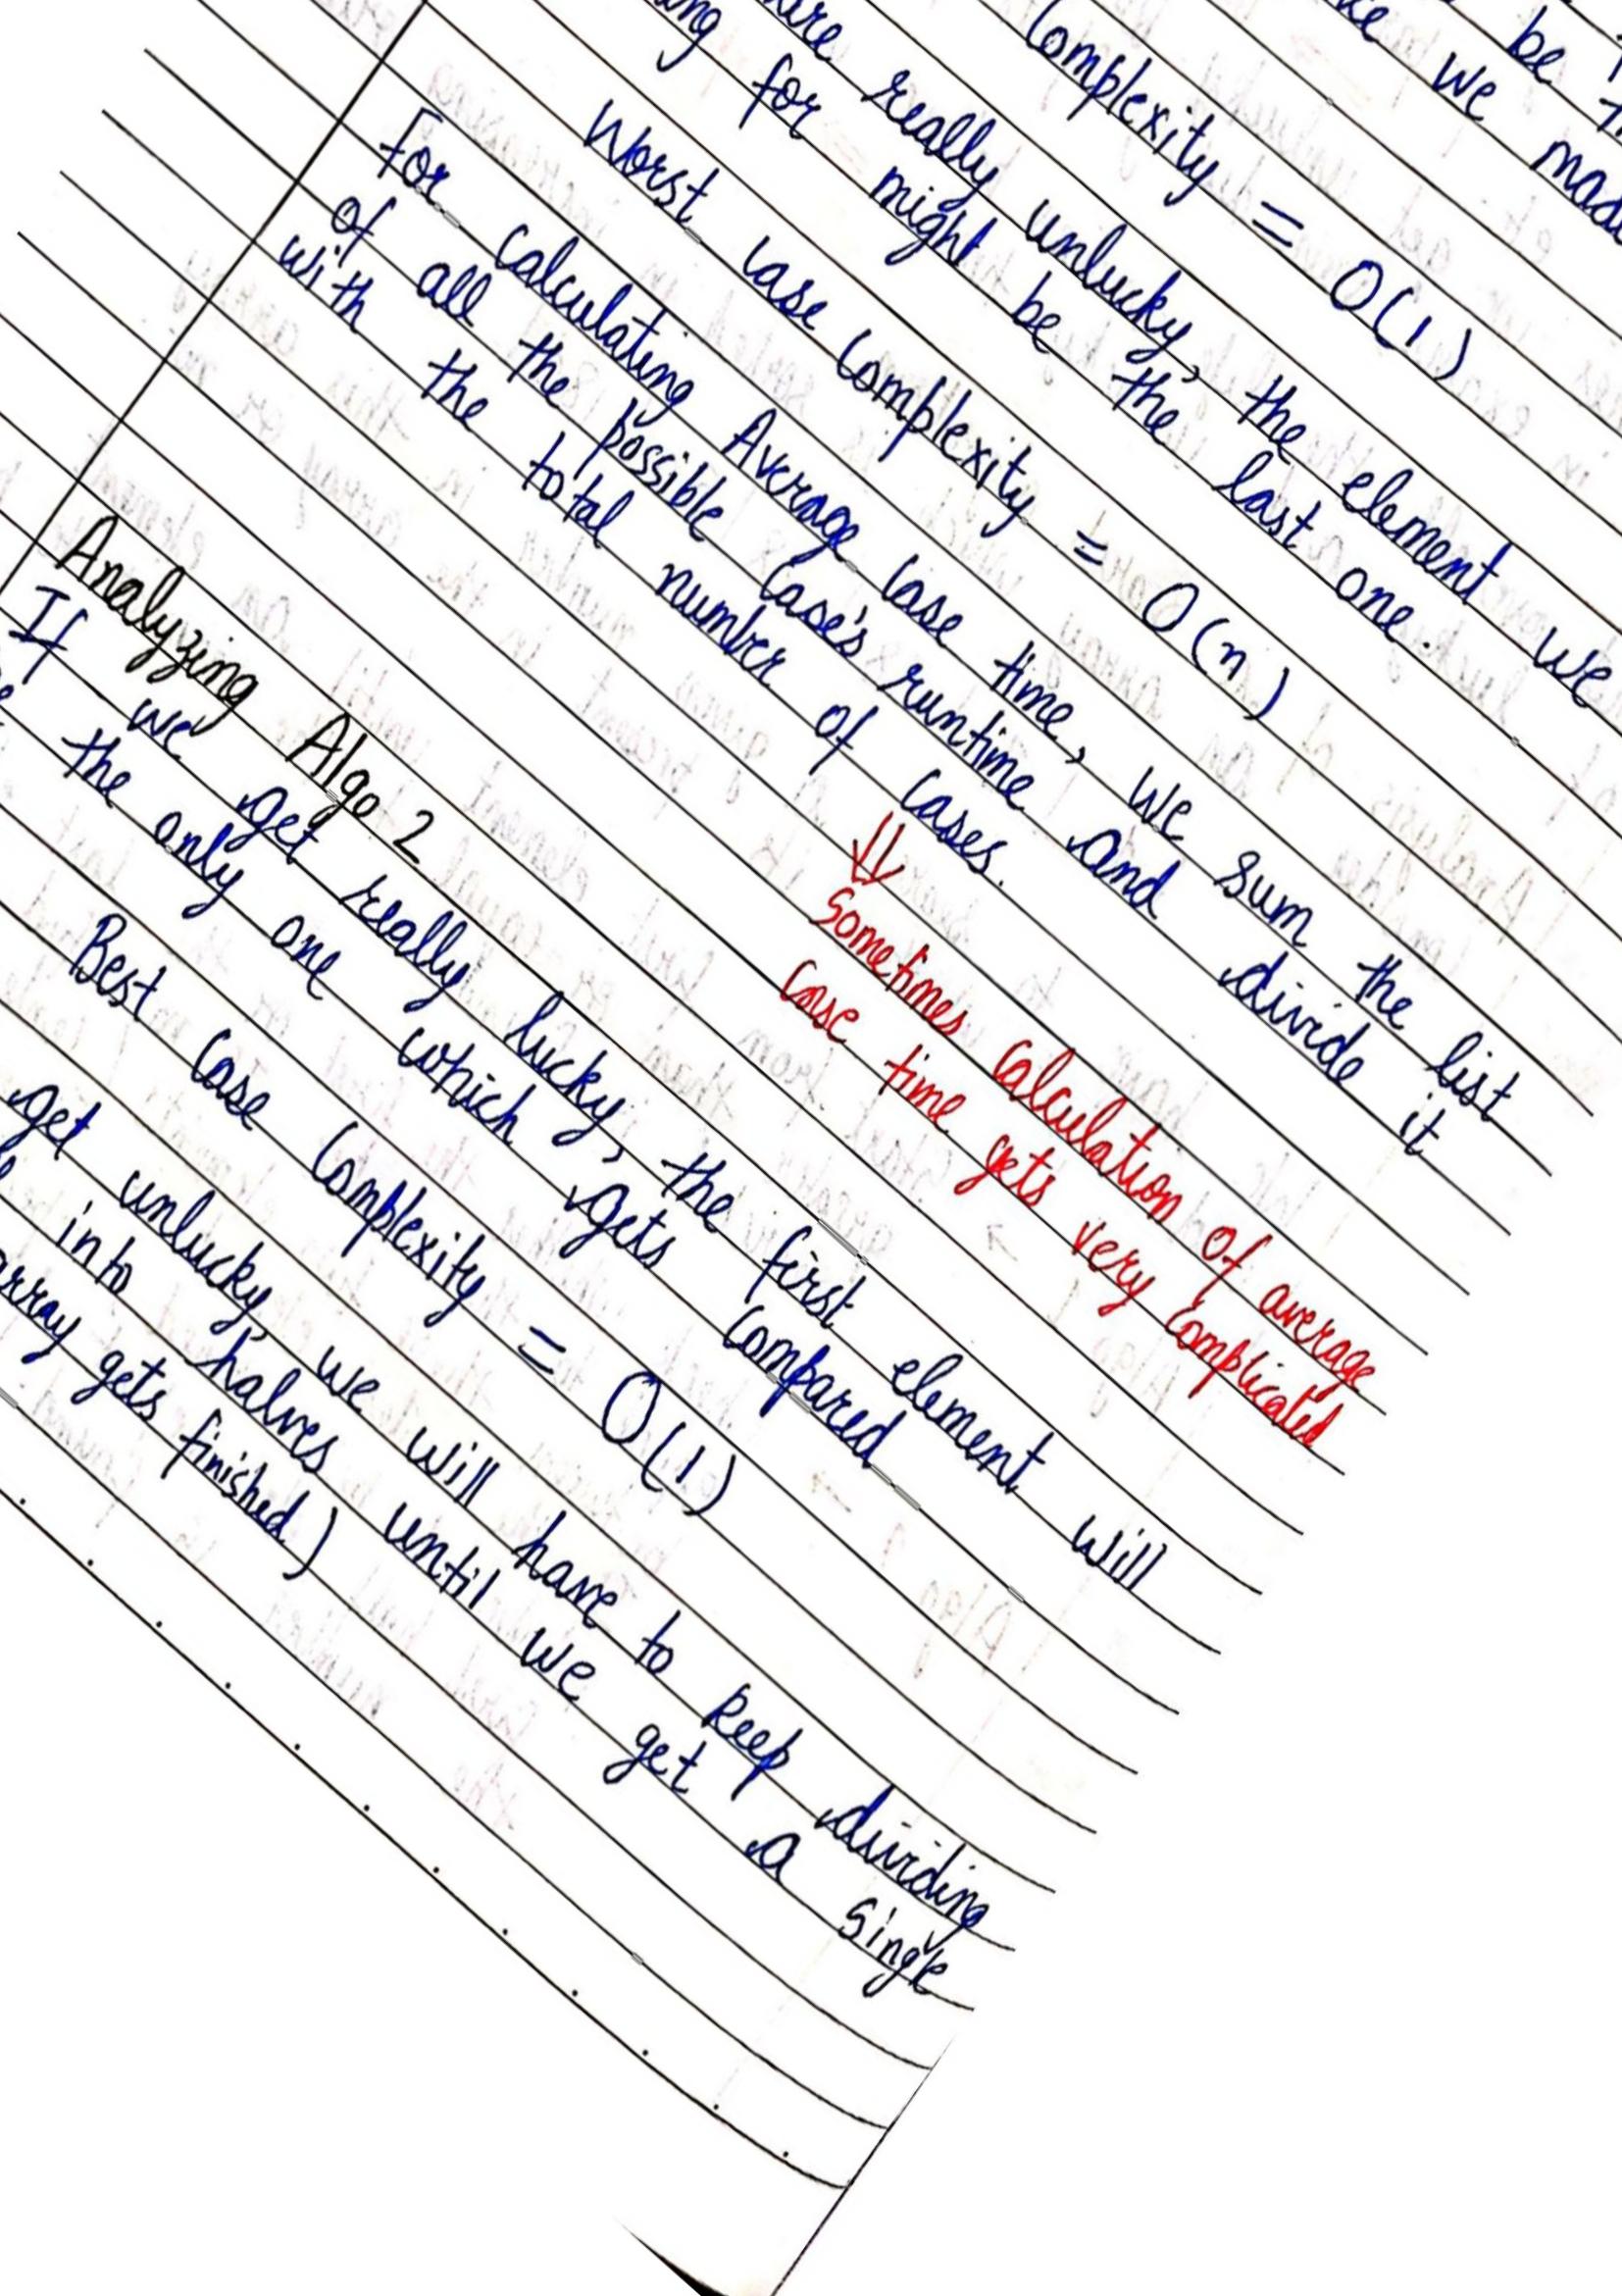 be
we made
complexity = O(1)
are really unlucky, the element we
ng for might be the last one.
Worst case complexity = O(n)
For calculating Average case time, we sum the list
of all the possible case's runtime and divide it
with the total number of cases.
⇓
Sometimes calculation of average
case time gets very complicated
Analyzing Algo 2
If we get really lucky, the first element will
the only one which gets compared
Best case complexity = O(1)
get unlucky, we will have to keep dividing
into halves until we get a single
array gets finished)